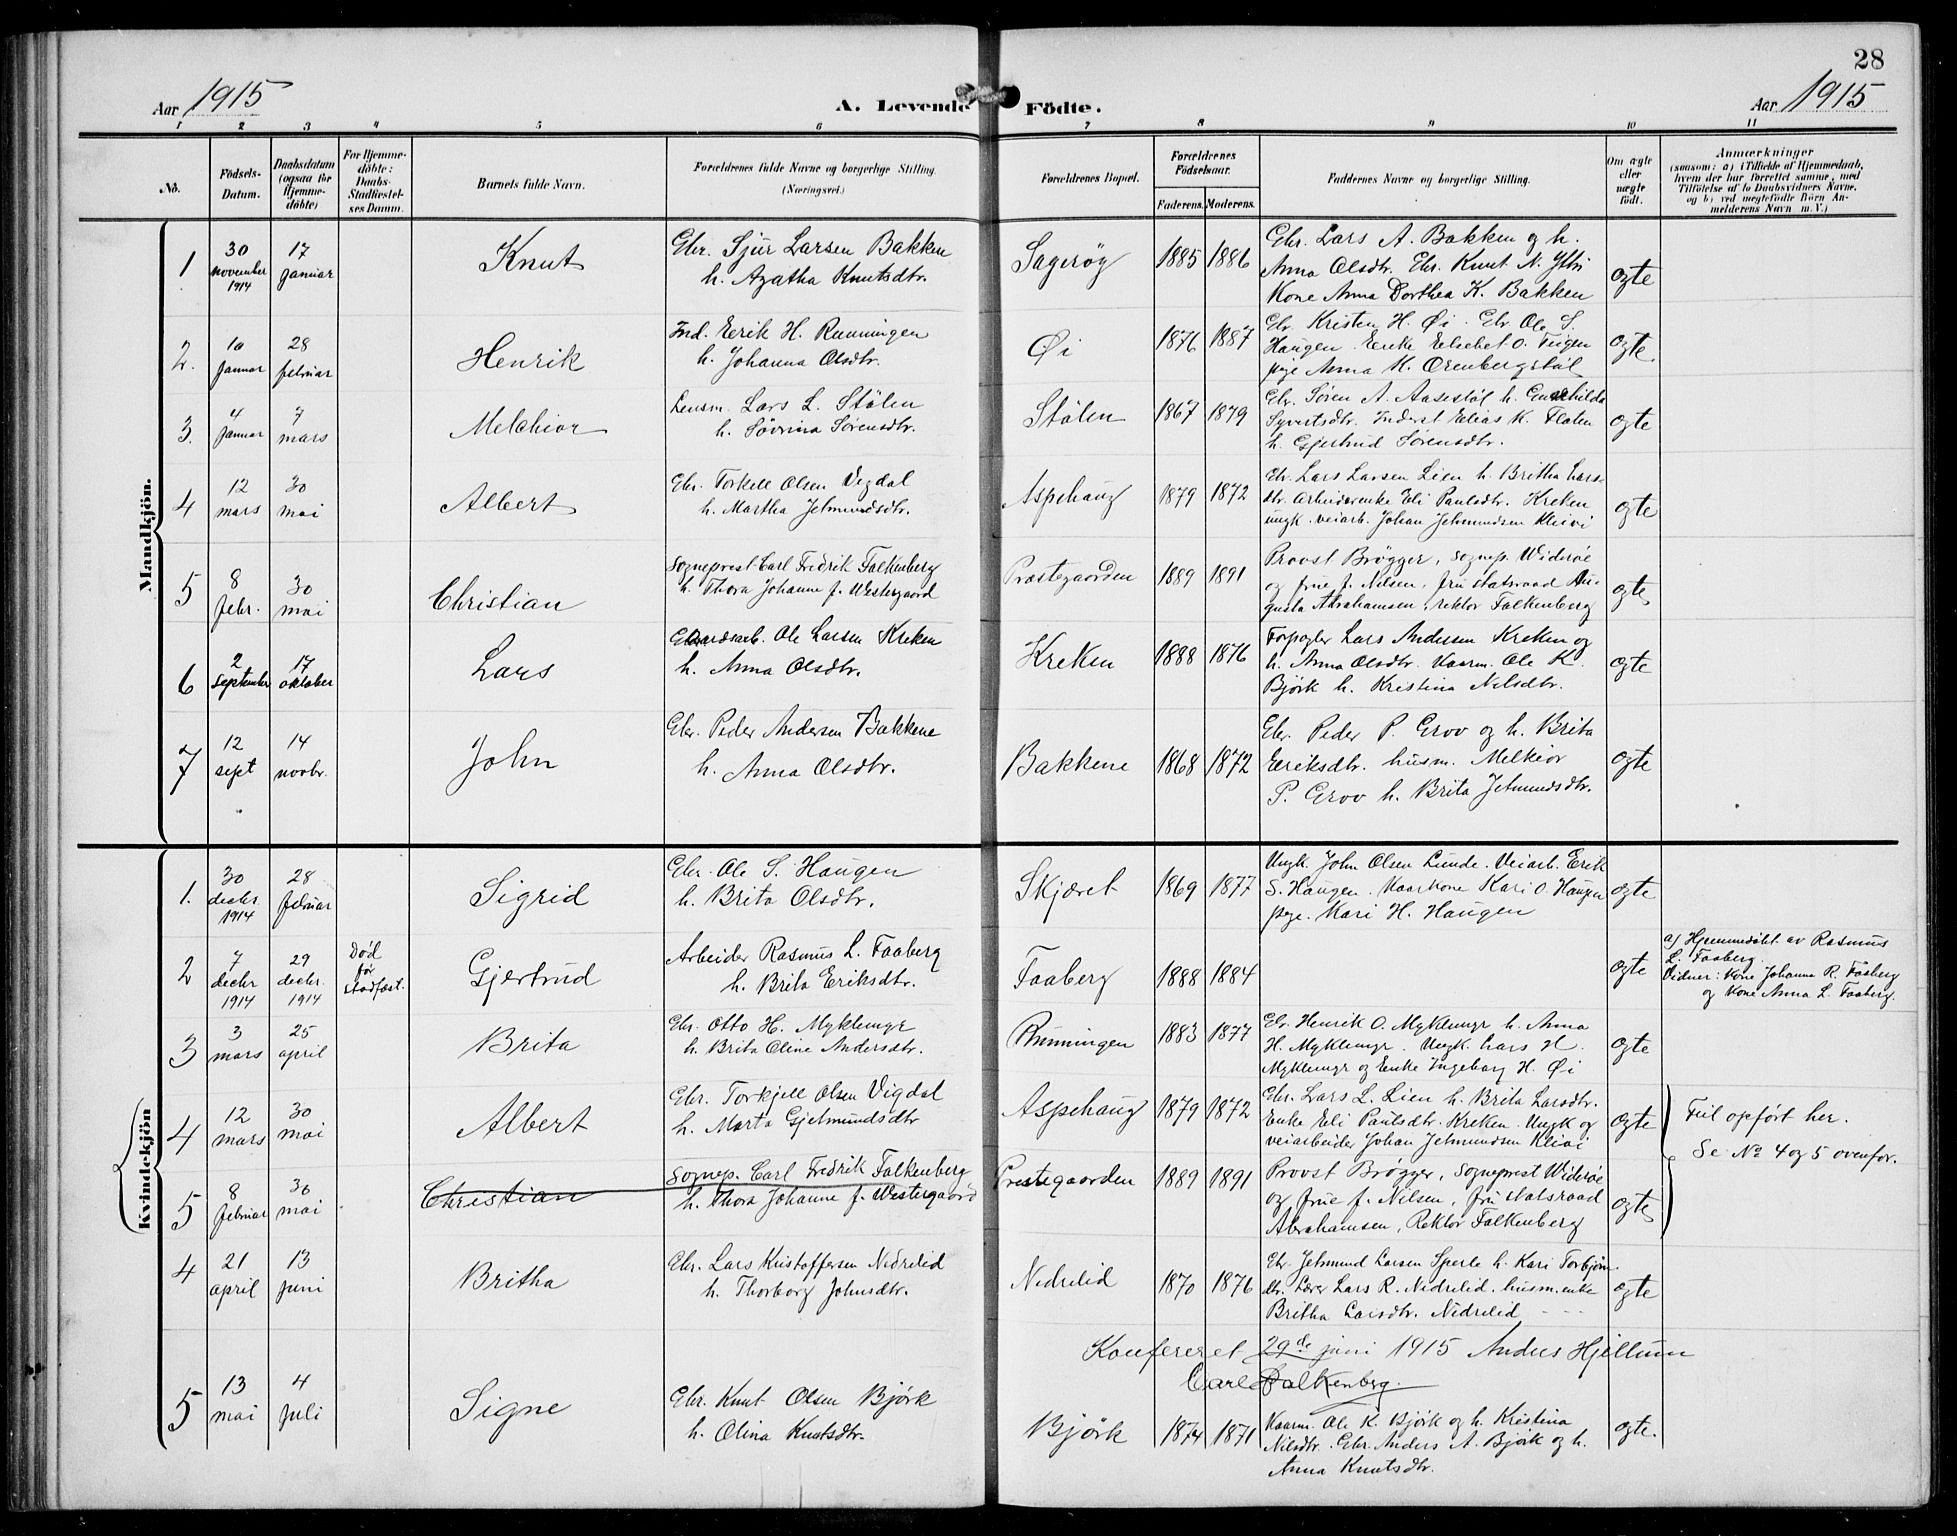 28
Aar 1915
A. Levende Födte.
Aar 1915
1 2 3 4 5 6 7 8 9 10 11
No.
Födsels-Datum.
Daabsdatum (ogsaa for Hjemme-döbte)
For Hjemme-döbte: Daabs-Stadfæstel-ses Datum.
Barnets fulde Navn.
Forældrenes fulde Navne og borgerlige Stilling. (Næringsvei.)
Forældrenes Bopæl.
Forældrenes Födselsaar. Faderens. Moderens.
Faddernes Navne og borgerlige Stilling.
Om ægte eller uægte födt.
Anmærkninger (saasom: a) i Tilfælde af Hjemmedaab, hvem der har forrettet samme, med Tilföielse af to Daabsvidners Navne, og b) ved uægtefödte Börn An-melderens Navn m. V.)
Mandkjön.
1 30 november 1914 17 januar Knut Gbr. Sjur Larsen Bakken h. Agatha Knutsdtr. Sagerøy 1885 1886 Gbr. Lars A. Bakken og h. Anna Olsdtr. Gbr. Knut N. Ytri Kone Anna Dorthea K. Bakken ægte
2. 10 januar 28 februar Henrik Ind. Eerik H. Runningen h. Johanna Olsdtr. Øi 1876 1887 Gbr. Kristen H. Øi. Gbr. Ole S. Haugen. Enke Elsebet O. Tugen pige Anna H. Orenbergstøl ægte.
3. 4 januar 7 mars Melchior Lensm. Lars L. Stölen h. Sövrina Sörensdtr. Stölen 1867 1879 Gbr. Sören A. Aasestöl h. Gunhilda Syvertsdtr. Inderst Elias K. Flaten h. Gjertrud Sörensdtr. ægte
4 12 mars 30 mai Albert Gbr. Torkell Olsen Vigdal h. Martha Jetmundsdtr. Aspehaug 1879 1872 Gbr. Lars Larsen Lien h. Britha Lars-dtr. Arbeiderenke Eli Paulsdtr. Kreken ungk. veiarb. Johan Jetmundsen Kleivi ægte
5 8 febr. 30 mai Christian Sogneprest Carl Fredrik Falkenberg h. Thora Johanne f. Westergaard Præstegaarden 1889 1891 Provst Brøgger, sognep. Widerøe og frue f. Nilsen, fru statsraad Au-gusta Abrahamsen, rektor Falkenberg ægte
6 2 september 17 oktober Lars Gaardsarb. Ole Larsen Kreken h. Anna Olsdtr. Kreken 1888 1876 Forpagter Lars Andersen Kreken og h. Anna Olsdtr. Kaarm. Ole K. Björk h. Kristina Nilsdtr. ægte
7 12 sept 14 novbr. John Gbr. Peder Andersen Bakkene h. Anna Olsdtr. Bakkene 1868 1872 Gbr. Peder P. Grov og h. Brita Eeriksdtr. husm. Melkior P. Grov h. Brita Jetmundsdtr. ægte
Kvindekjön
1. 30 decbr. 1914 28 februar Sigrid Gbr. Ole S. Haugen h. Brita Olsdtr. Skjæret 1869 1877 Ungk. John Olsen Lunde. Veiarb. Erik S. Haugen. Kaarkone Kari O. Haugen pige. Kari H. Haugen ægte
2 7 decbr 1914 29 decbr. 1914 Död før stadfæst. Gjertrud Arbeider Rasmus L. Faaberg h. Brita Eriksdtr. Faaberg 1888 1884 ægte a) Hjemmedöbt av Rasmus L. Faaberg. Vidner: Kone Johanna R. Faaberg og Kone Anna L. Faaberg.
3 3 mars 25 april Brita Gbr. Otto H. Myklemyr h. Brita Oline Andersdtr. Runningen 1883 1877 Gbr. Henrik O. Myklemyr h. Anna H. Myklemyr. Ungk. Lars H. Myklemyr og Enke Ingeborg H. Øi ægte
4 12 mars 30 mai Albert Gbr. Torkjell Olsen Vigdal h. Marta Gjetmundsdtr Aspehaug 1879 1872 Gbr. Lars L. Lien h. Brita Larsdtr. Enke Eli Paulsdtr. Kreken. Ungk og veiarbeider Johan Jetmundsen Kleivi ægte Feil opført her. Se No 4 og 5 ovenfor.
5 8 februar 30 mai Christian Sognep. Carl Fredrik Falkenberg h. Thora Johanne f. Westergaard Prestegaarden 1889 1891 Provst Brøgger, Sogneprest Widerøe og frue f. Nilsen, fru statsraad Abrahamsen, Rektor Falkenberg ægte
4 21 april 13 juni Britha Gbr. Lars Kristoffersen Nedrelid h. Thorborg Johnsdtr. Nedrelid 1870 1876 Gbr. Jetmund Larsen Sperle h. Kari Torbjörns-dtr. Lærer Lars R. Nedrelid. husm.enke Britha Larsdtr. Nedrelid - - - ægte
Konfereret 29de juni 1915 Anders Hjellum
Carl Falkenberg.
5 13 mai 4 juli Signe Gbr. Knut Olsen Björk h. Olina Knutsdtr. Björk 1874 1871 Kaarm. Ole K. Björk og h. Kristina Nilsdtr. Gbr. Anders A. Björk og h. Anna Knutsdtr. ægte.